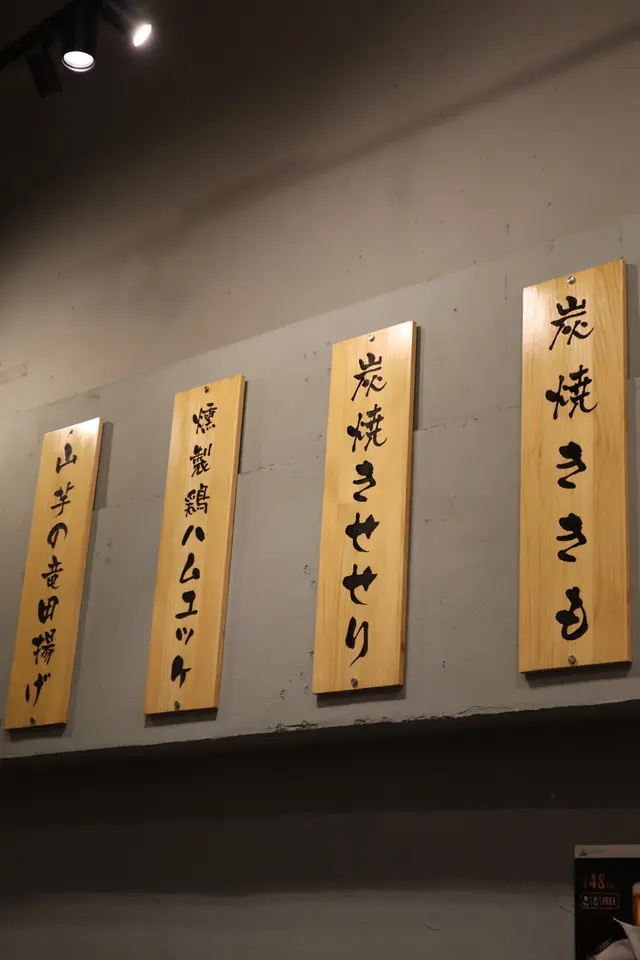 炭焼ききも
炭焼きせせり
燻製鶏ハムユッケ
山芋の竜田揚げ
48
FREE